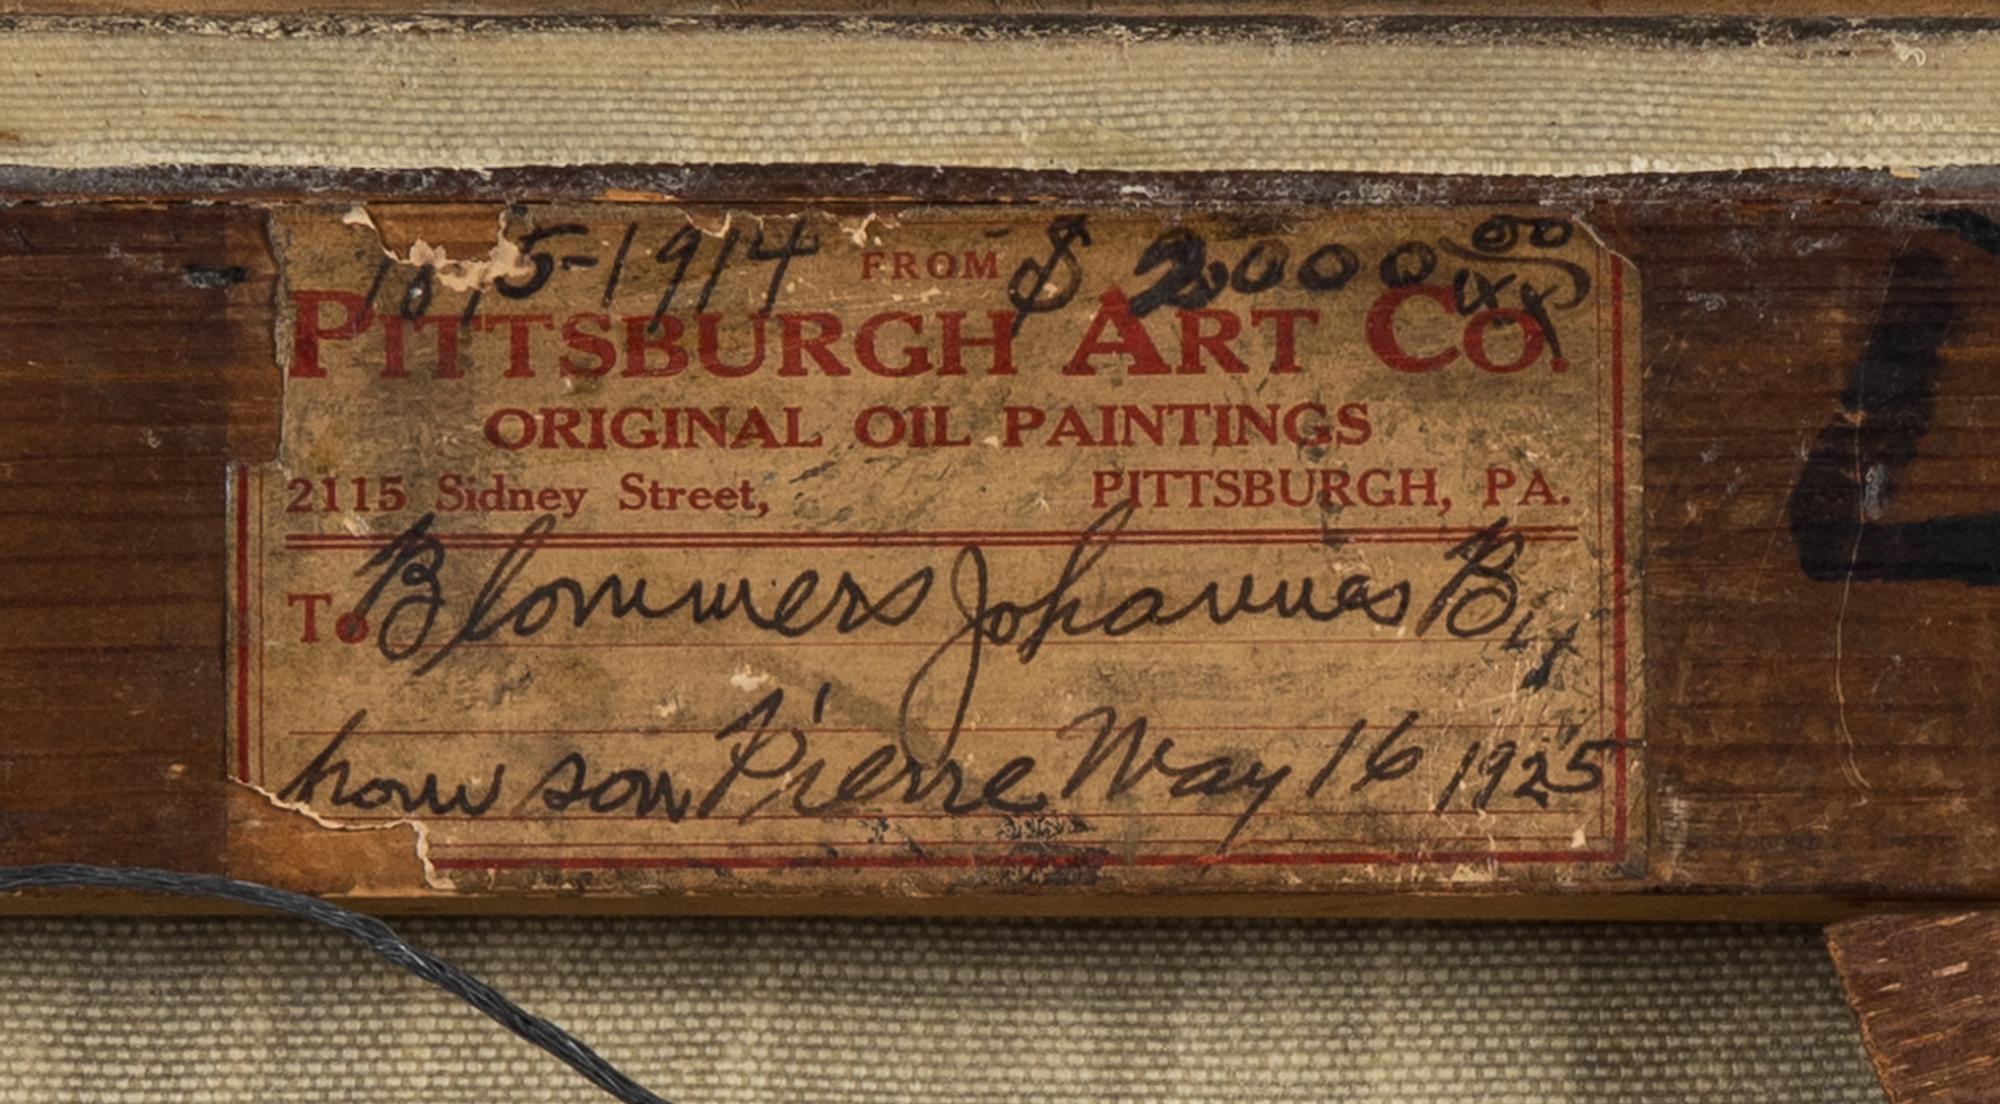 5-1914 FROM $ 2000 00/xx
PITTSBURGH ART CO.
ORIGINAL OIL PAINTINGS
2115 Sidney Street, PITTSBURGH, PA.
To Blommers Johannes B.
son Pierre May 16 1925